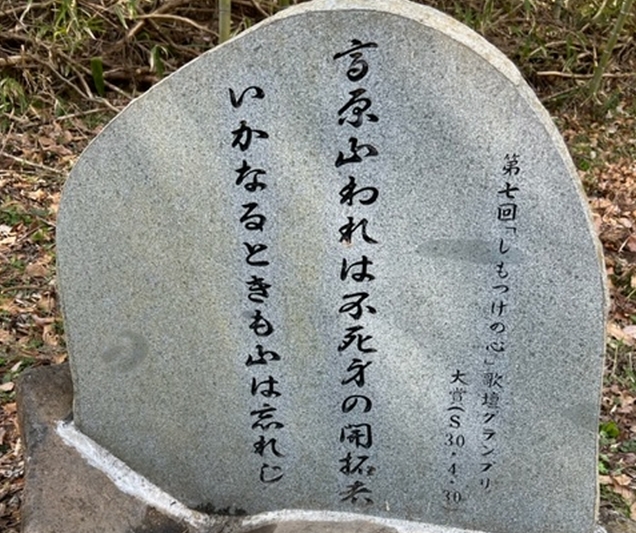 第七回「しもつけの心」歌壇グランプリ
大賞(S30・4・30
高原山われは不死身の開拓者
いかなるときも山は忘れじ